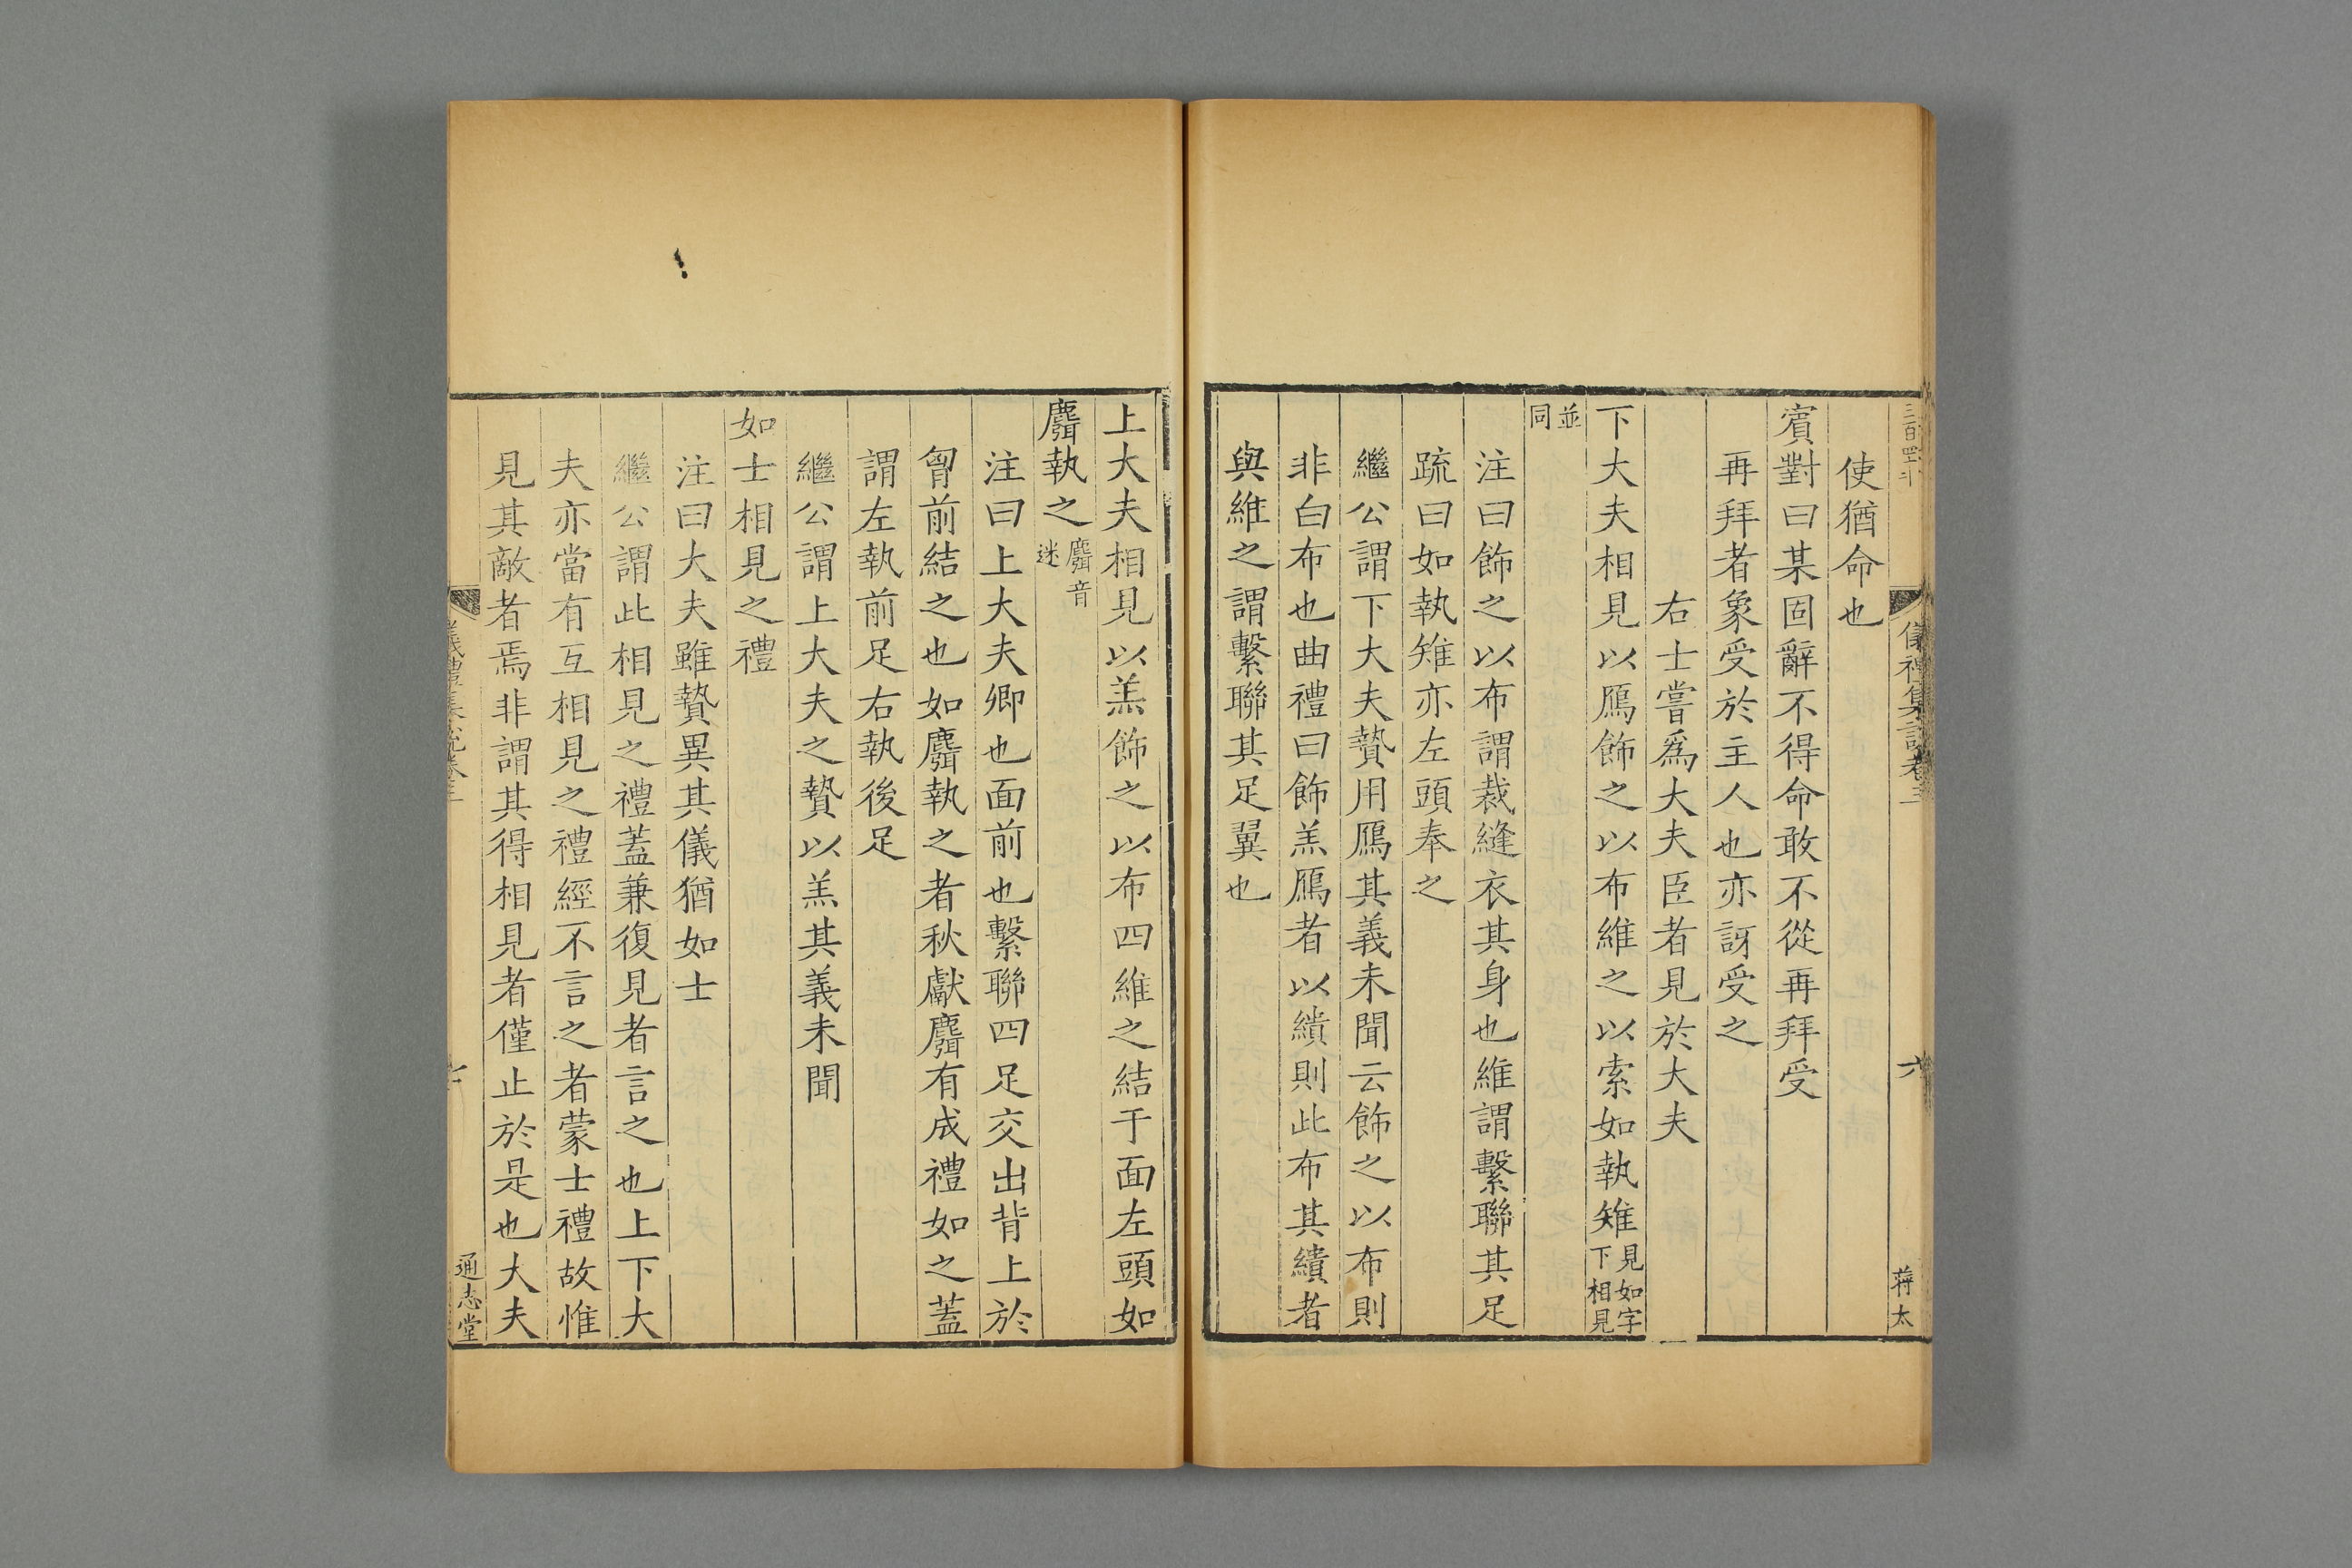 儀禮集說卷三
六
蔣太
使猶命也
賓對曰某固辭不得命敢不從再拜受
再拜者象受於主人也亦訝受之
右士嘗爲大夫臣者見於大夫
下大夫相見以鴈飾之以布維之以索如執雉見如字下相見
並同
注曰飾之以布謂裁縫衣其身也維謂繫聯其足
疏曰如執雉亦左頭奉之
繼公謂下大夫贄用鴈其義未聞云飾之以布則
非白布也曲禮曰飾羔鴈者以繢則此布其繢者
與維之謂繫聯其足翼也
上大夫相見以羔飾之以布四維之結于面左頭如
麛執之麛音迷
注曰上大夫卿也面前也繫聯四足交出背上於
胷前結之也如麛執之者秋獻麛有成禮如之蓋
謂左執前足右執後足
繼公謂上大夫之贄以羔其義未聞
如士相見之禮
注曰大夫雖贄異其儀猶如士
繼公謂此相見之禮蓋兼復見者言之也上下大
夫亦當有互相見之禮經不言之者蒙士禮故惟
見其敵者焉非謂其得相見者僅止於是也大夫
儀禮集說卷三
七
通志堂